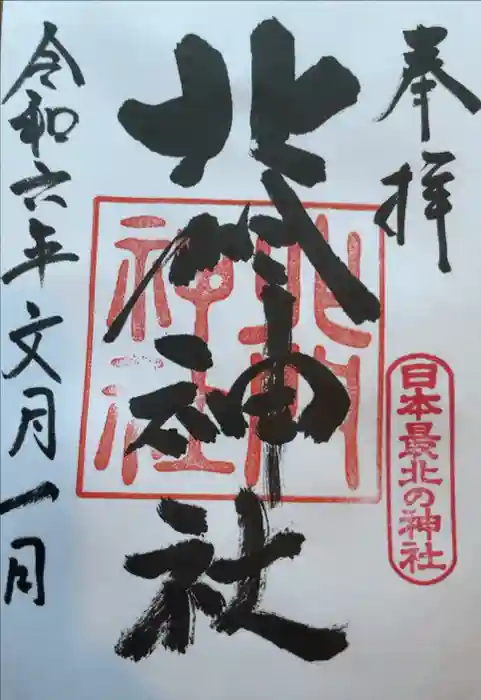 奉拝
日本最北の神社
北門神社
北門神社
令和六年文月一日